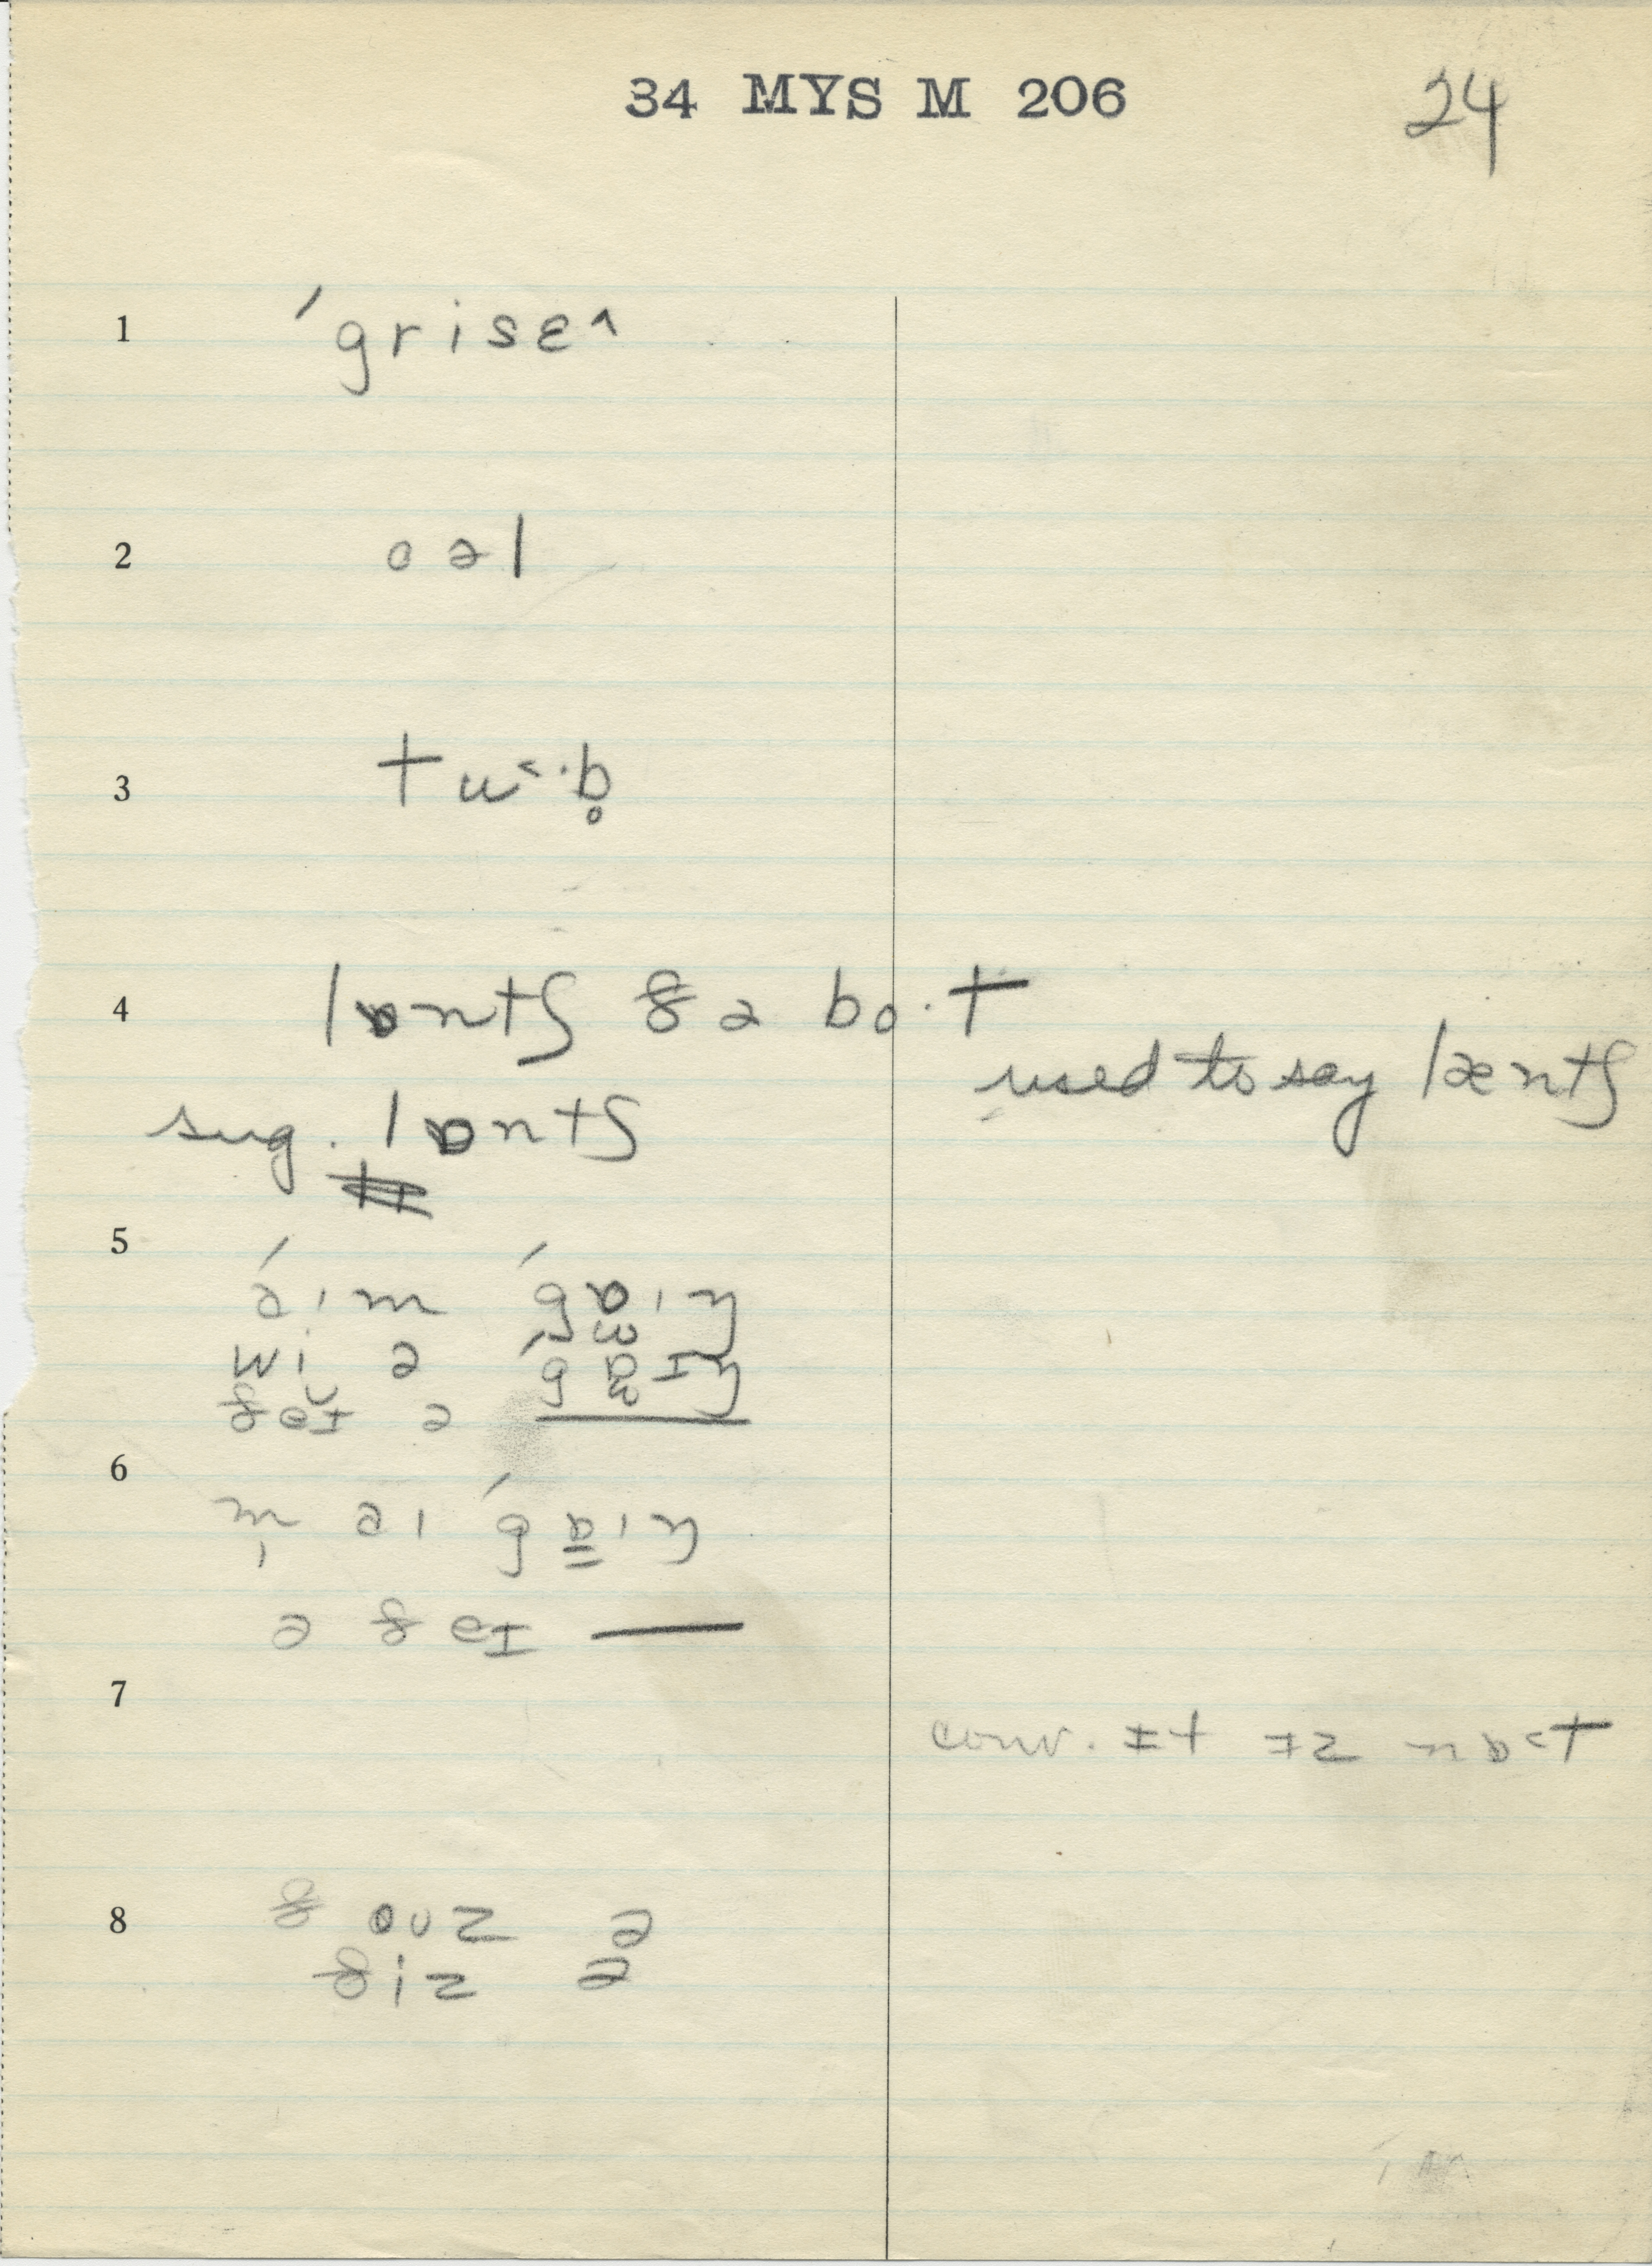 34 MYS M 206
24
1 ˊgrisɛ˄
2 oəl
3 tɯ˂·b̥
4 lɒntʃ ðə bo·t
used to say læntʃ
sug. lɒntʃ
5
á ɪ m ˊgɒɪŋ
wi ə ˊgɒɪŋ
ðeɪ ə
6
m̩ aɪ ˊgɒɪŋ
ə ðeɪ —
7 conv. ɪt ɪz nɒ˂t
8 ðoʊz ə
ðiz ə